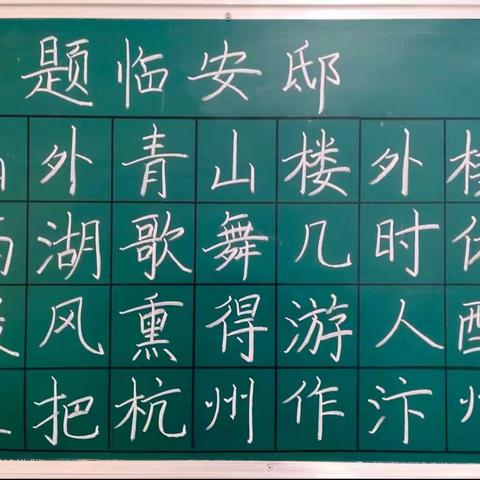 题临安邸
外青山楼外
湖歌舞几时
风熏得游人
把杭州作汴